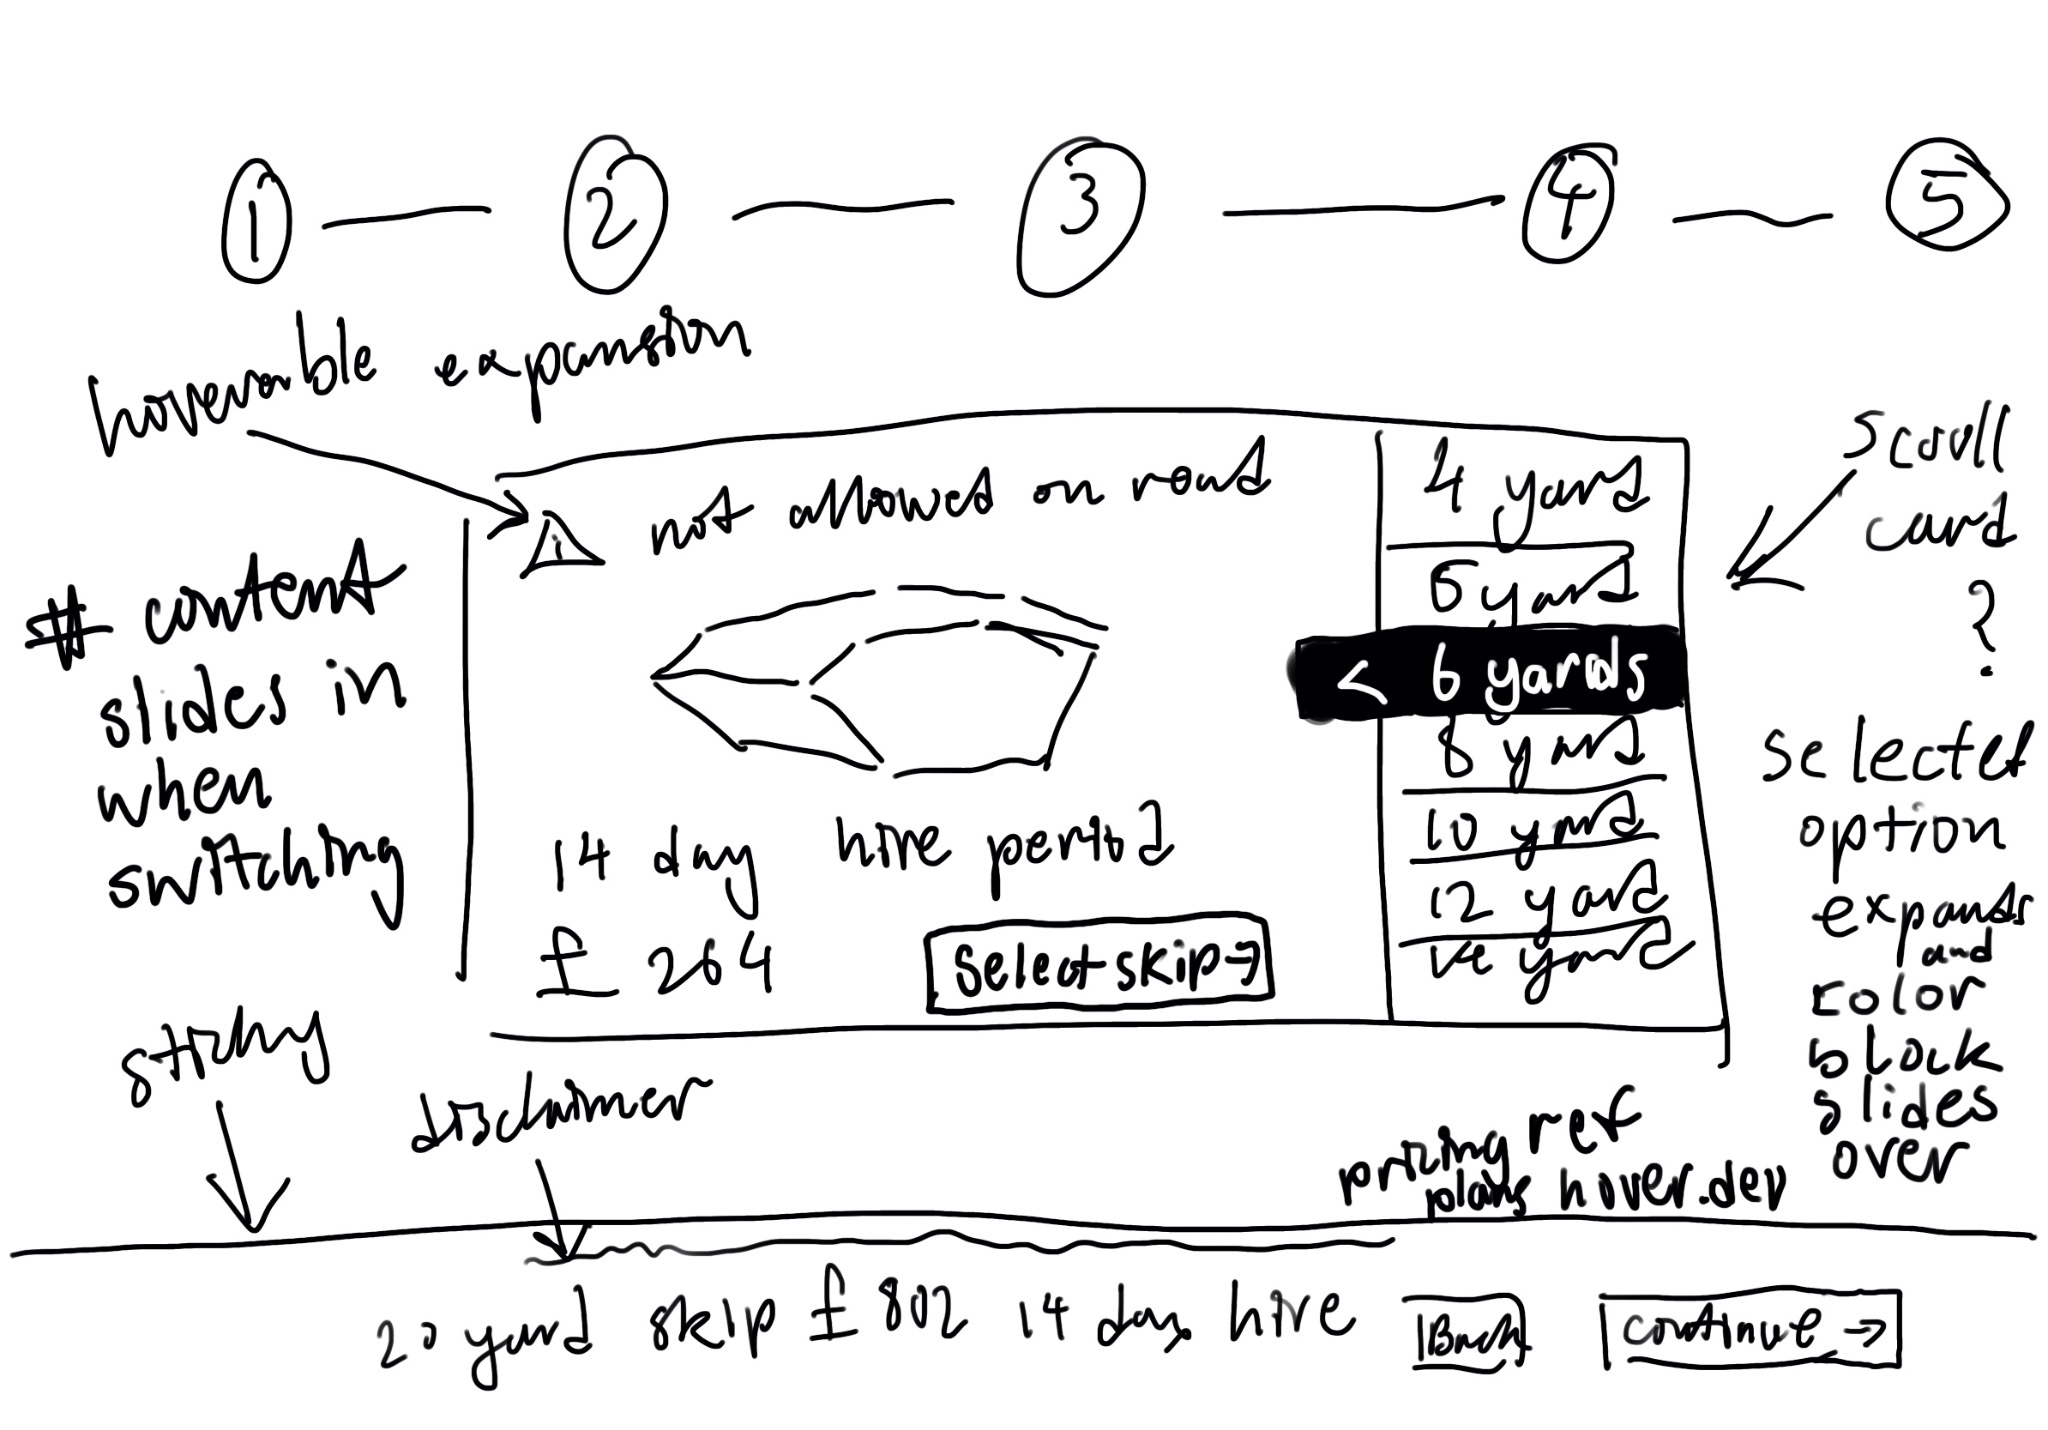 1 2 3 4 5
hoverable expansion
! not allowed on road
# content
slides in
when
switching
14 day hire period
£ 264
Select skip →
4 yard
6 yard
< 6 yards
8 yard
10 yard
12 yard
yard
scroll
card
?
selected
option
expands
and
color
block
slides
over
sticky
disclaimer
pricing ref
plans hover.dev
20 yard skip £ 802 14 day hire
Back
continue →